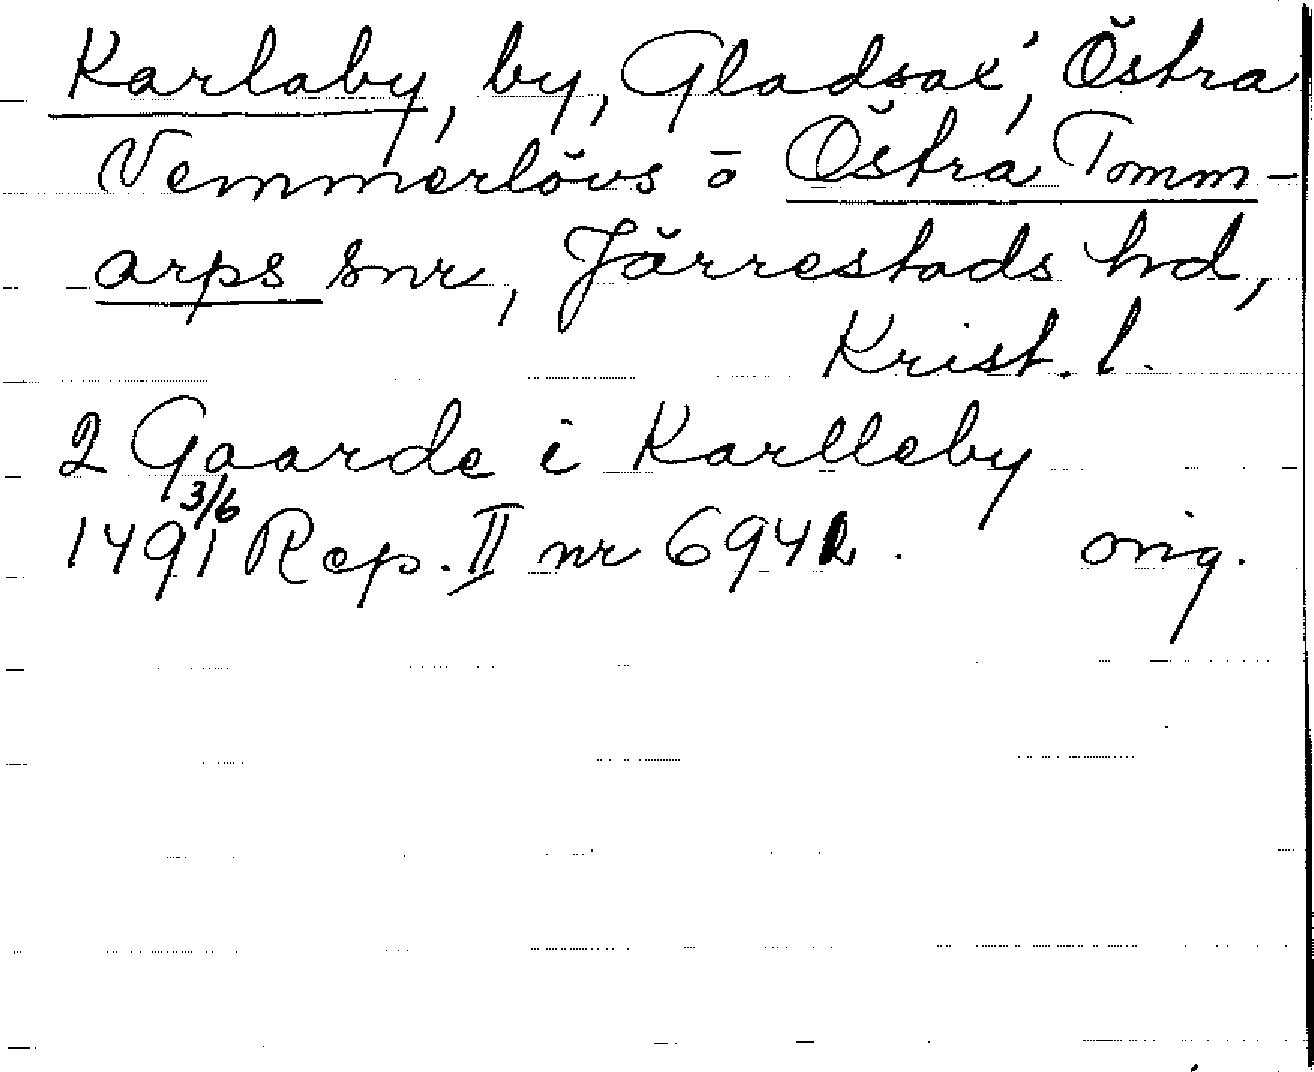 Karlaby, by, Gladsax', Östra
Vemmerlövs o Östra Tomm-
arps snr, Järrestads hd,
Krist. l.
2 Gaarde i Karlleby
3/6
1491 Rep. II nr 6942. orig.